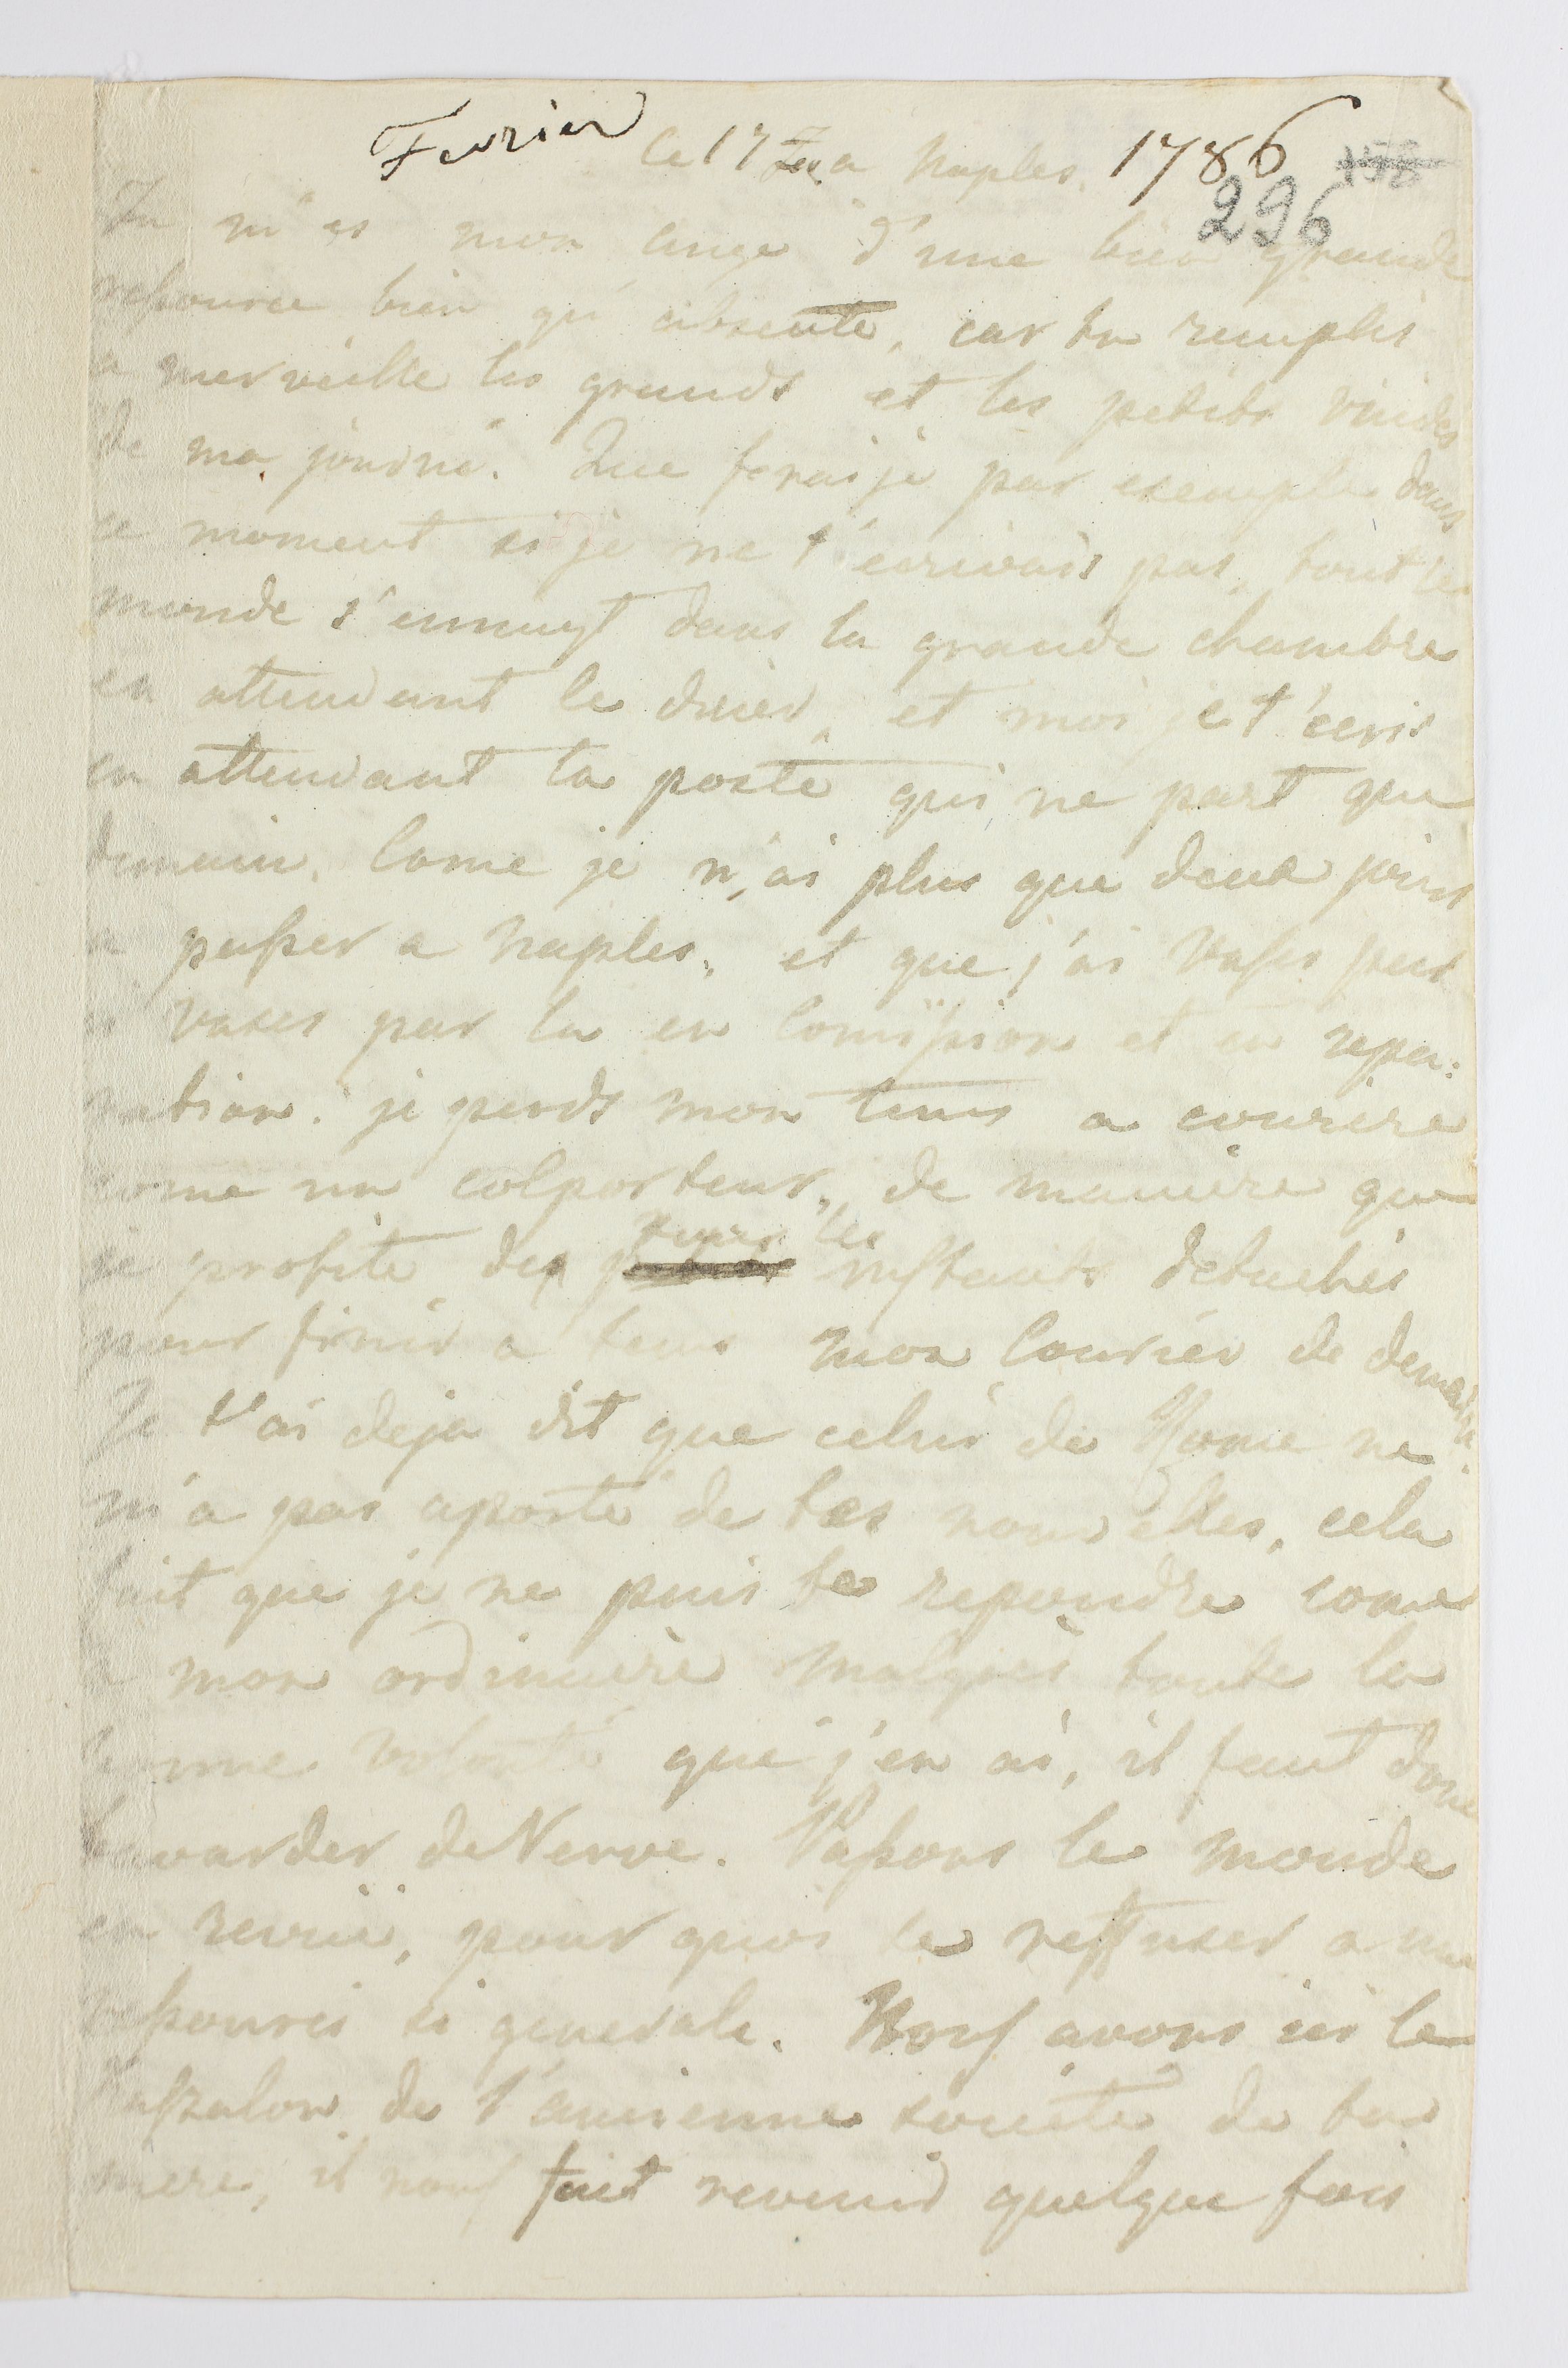 Fevrier
le 17 a Naples. 1786 158
296
Tu m'es mon ange d'une bien grande
ressource bien qu'absente, car tu remplis
a merveille les grands et les petits vuides
de ma journé. Que feraisje par exemple dans
ce moment si je ne t'ecrivais pas, tout le
monde s'ennuyt dans la grande chambre
en attendant le diner, et moi je t'ecris
en attendant la poste qui ne part que
demain. Come je n'ai plus que deux jours
a passer a Naples, et que j'ai vases par
ci vases par la en Comission et en repa:
ration. je perds mon tems a courire
come un colporteur, de maniere que
je profite de tous les instants detachés
pour finir a tems mon Courier de demain.
Je t'ai deja dit que celui de Rome ne
m'a pas aporté de tes nouvelles, cela
fait que je ne puis te repondre come
a mon ordinaire malgres toute la
bonne volonté que j'en ai, il faut donc
bavarder de Verve. Passons le monde
en revuë, pour quoi se reffuser a une
ressource si generale. Nous avons ici le
de l'ancienne societé de ta
mere, il nous fait revenir quelque fois